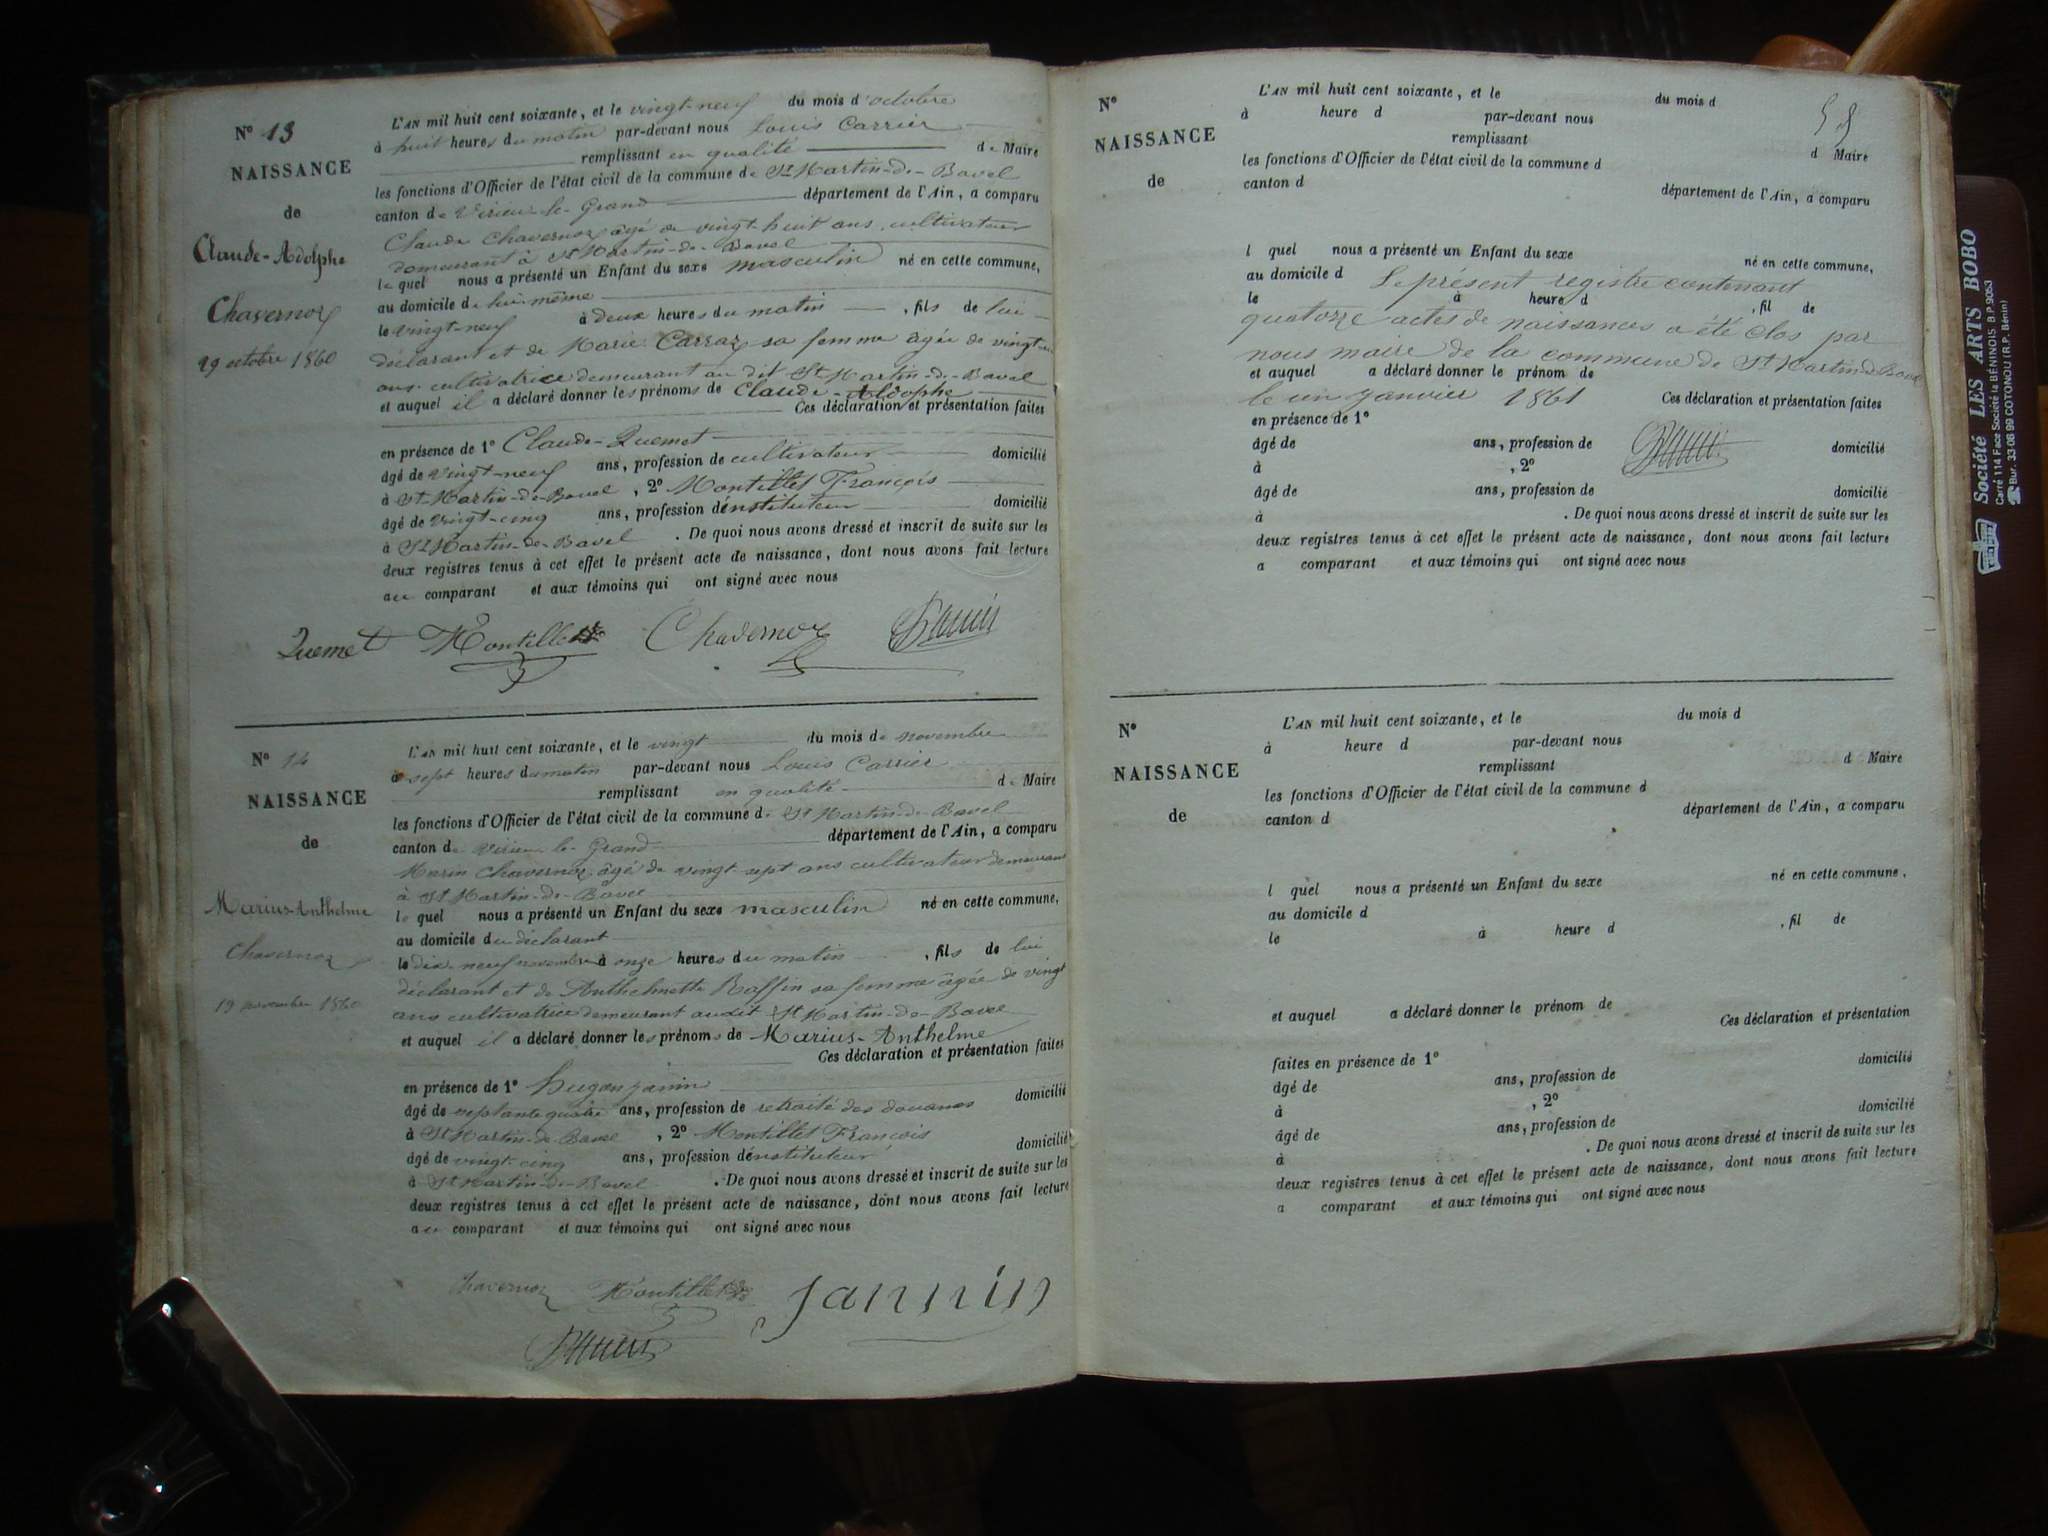 N° 13
NAISSANCE
de
Claude-Adolphe
Chavernoz
29 octobre 1860
L'AN mil huit cent soixante, et le vingt-neuf du mois d'octobre
à huit heures du matin par-devant nous Louis Carrier
remplissant en qualité de Maire
les fonctions d'Officier de l'état civil de la commune de St Martin-de-Bavel
canton de Virieu-le-Grand département de l'Ain, a comparu
Claude Chavernoz âgé de vingt-huit ans, cultivateur
demeurant à St Martin-de-Bavel
lequel nous a présenté un Enfant du sexe masculin né en cette commune,
au domicile de lui-même
le vingt-neuf à deux heures du matin, fils de lui
déclarant et de Marie Carraz sa femme âgée de vingt-
ans cultivatrice demeurant au dit St Martin-de-Bavel
et auquel il a déclaré donner les prénoms de Claude-Aldophe
Ces déclaration et présentation faites
en présence de 1° Claude-Quemet
âgé de vingt-neuf ans, profession de cultivateur domicilié
à St-Martin-de-Bavel, 2° Montillet François
âgé de vingt-cinq ans, profession d'instituteur domicilié
à St Martin-de-Bavel. De quoi nous avons dressé et inscrit de suite sur les
deux registres tenus à cet effet le présent acte de naissance, dont nous avons fait lecture
au comparant et aux témoins qui ont signé avec nous
Quemet Montillet Chavernoz
N° 14
NAISSANCE
de
Marius-Anthelme
Chavernoz
19 novembre 1860
L'AN mil huit cent soixante, et le vingt du mois de novembre
à sept heures du matin par-devant nous Louis Carrier
remplissant en qualité de Maire
les fonctions d'Officier de l'état civil de la commune de St Martin-de-Bavel
canton de Virieu-le-Grand département de l'Ain, a comparu
Marin Chavernoz âgé de vingt-sept ans cultivateur demeurant
à St Martin-de-Bavel
lequel nous a présenté un Enfant du sexe masculin né en cette commune,
au domicile du déclarant
le dix-neuf novembre à onze heures du matin, fils de lui
déclarant et de Anthelmette Raffin sa femme âgée de vingt
ans cultivatrice demeurant audit St Martin-de-Bavel
et auquel il a déclaré donner les prénoms de Marius-Anthelme
Ces déclaration et présentation faites
en présence de 1° Hugon janin
âgé de septante quatre ans, profession de retraité des douanes domicilié
à St Martin-de-Bavel, 2° Montillet François
âgé de vingt-cinq ans, profession d'instituteur domicilié
à St Martin-de-Bavel. De quoi nous avons dressé et inscrit de suite sur les
deux registres tenus à cet effet le présent acte de naissance, dont nous avons fait lecture
au comparant et aux témoins qui ont signé avec nous
Chavernoz Montillet Jannin
N°
NAISSANCE
de
L'AN mil huit cent soixante, et le du mois d
à heure d par-devant nous
remplissant
d Maire
les fonctions d'Officier de l'état civil de la commune d
canton d département de l'Ain, a comparu
l quel nous a présenté un Enfant du sexe né en cette commune,
au domicile d
Le présent registre contenant
le à heure d , fil de
quatorze actes de naissances a été clos par
nous maire de la commune de St Martin-de-Bavel
et auquel a déclaré donner le prénom de
le un janvier 1861
Ces déclaration et présentation faites
en présence de 1°
âgé de ans, profession de domicilié
à , 2°
âgé de ans, profession de domicilié
à . De quoi nous avons dressé et inscrit de suite sur les
deux registres tenus à cet effet le présent acte de naissance, dont nous avons fait lecture
a comparant et aux témoins qui ont signé avec nous
N°
NAISSANCE
de
L'AN mil huit cent soixante, et le du mois d
à heure d par-devant nous
remplissant d Maire
les fonctions d'Officier de l'état civil de la commune d
canton d département de l'Ain, a comparu
l quel nous a présenté un Enfant du sexe né en cette commune,
au domicile d
le à heure d , fil de
et auquel a déclaré donner le prénom de
Ces déclaration et présentation
faites en présence de 1° domicilié
âgé de ans, profession de
à , 2° domicilié
âgé de ans, profession de
à . De quoi nous avons dressé et inscrit de suite sur les
deux registres tenus à cet effet le présent acte de naissance, dont nous avons fait lecture
a comparant et aux témoins qui ont signé avec nous
Société LES ARTS BOBO
Carré 114 Face Société la BÉNINOIS B.P. 9053
Bur. 33 08 99 COTONOU (R.P. Bénin)